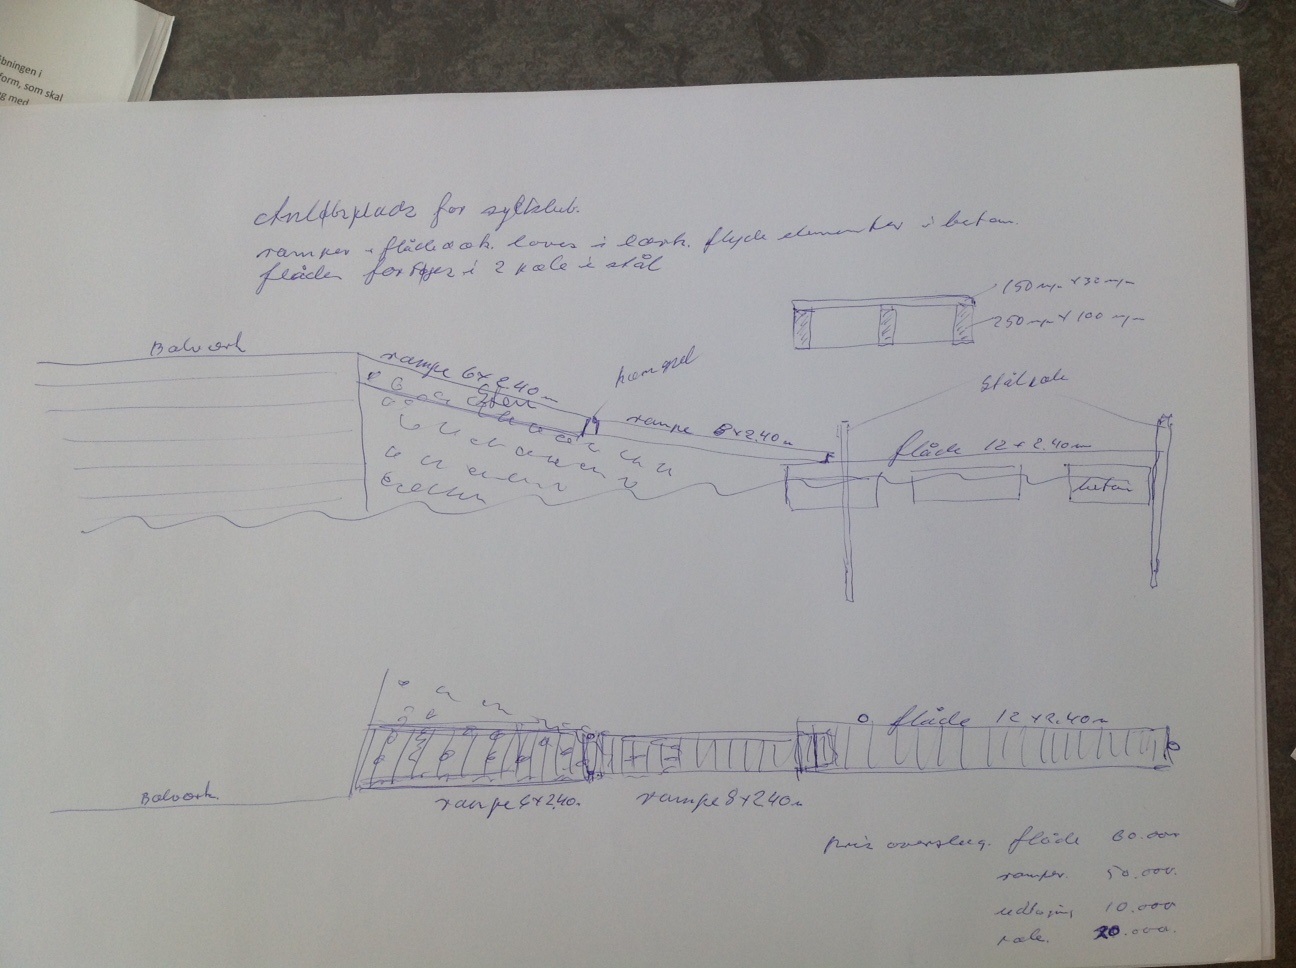 åbningen i
form, som skal
g med
for
ramper + flådedæk. laves i lærk. flyde elementer i beton.
flåden i 2 pæle i stål
150 m/m x 32 m/m
250 m/m x 100 m/m
Bolværk
rampe 6 x 2.40 m
Sten
Stålpæle
rampe 8 x 2.40 m
flåde 12 x 2.40 m
beton
flåde 12 x 2.40 m
Bolværk
rampe 6 x 2.40.
rampe 8 x 2.40 m
pris overslag. flåde 60.000
ramper. 50.000.
10.000
pæle. 20.000.